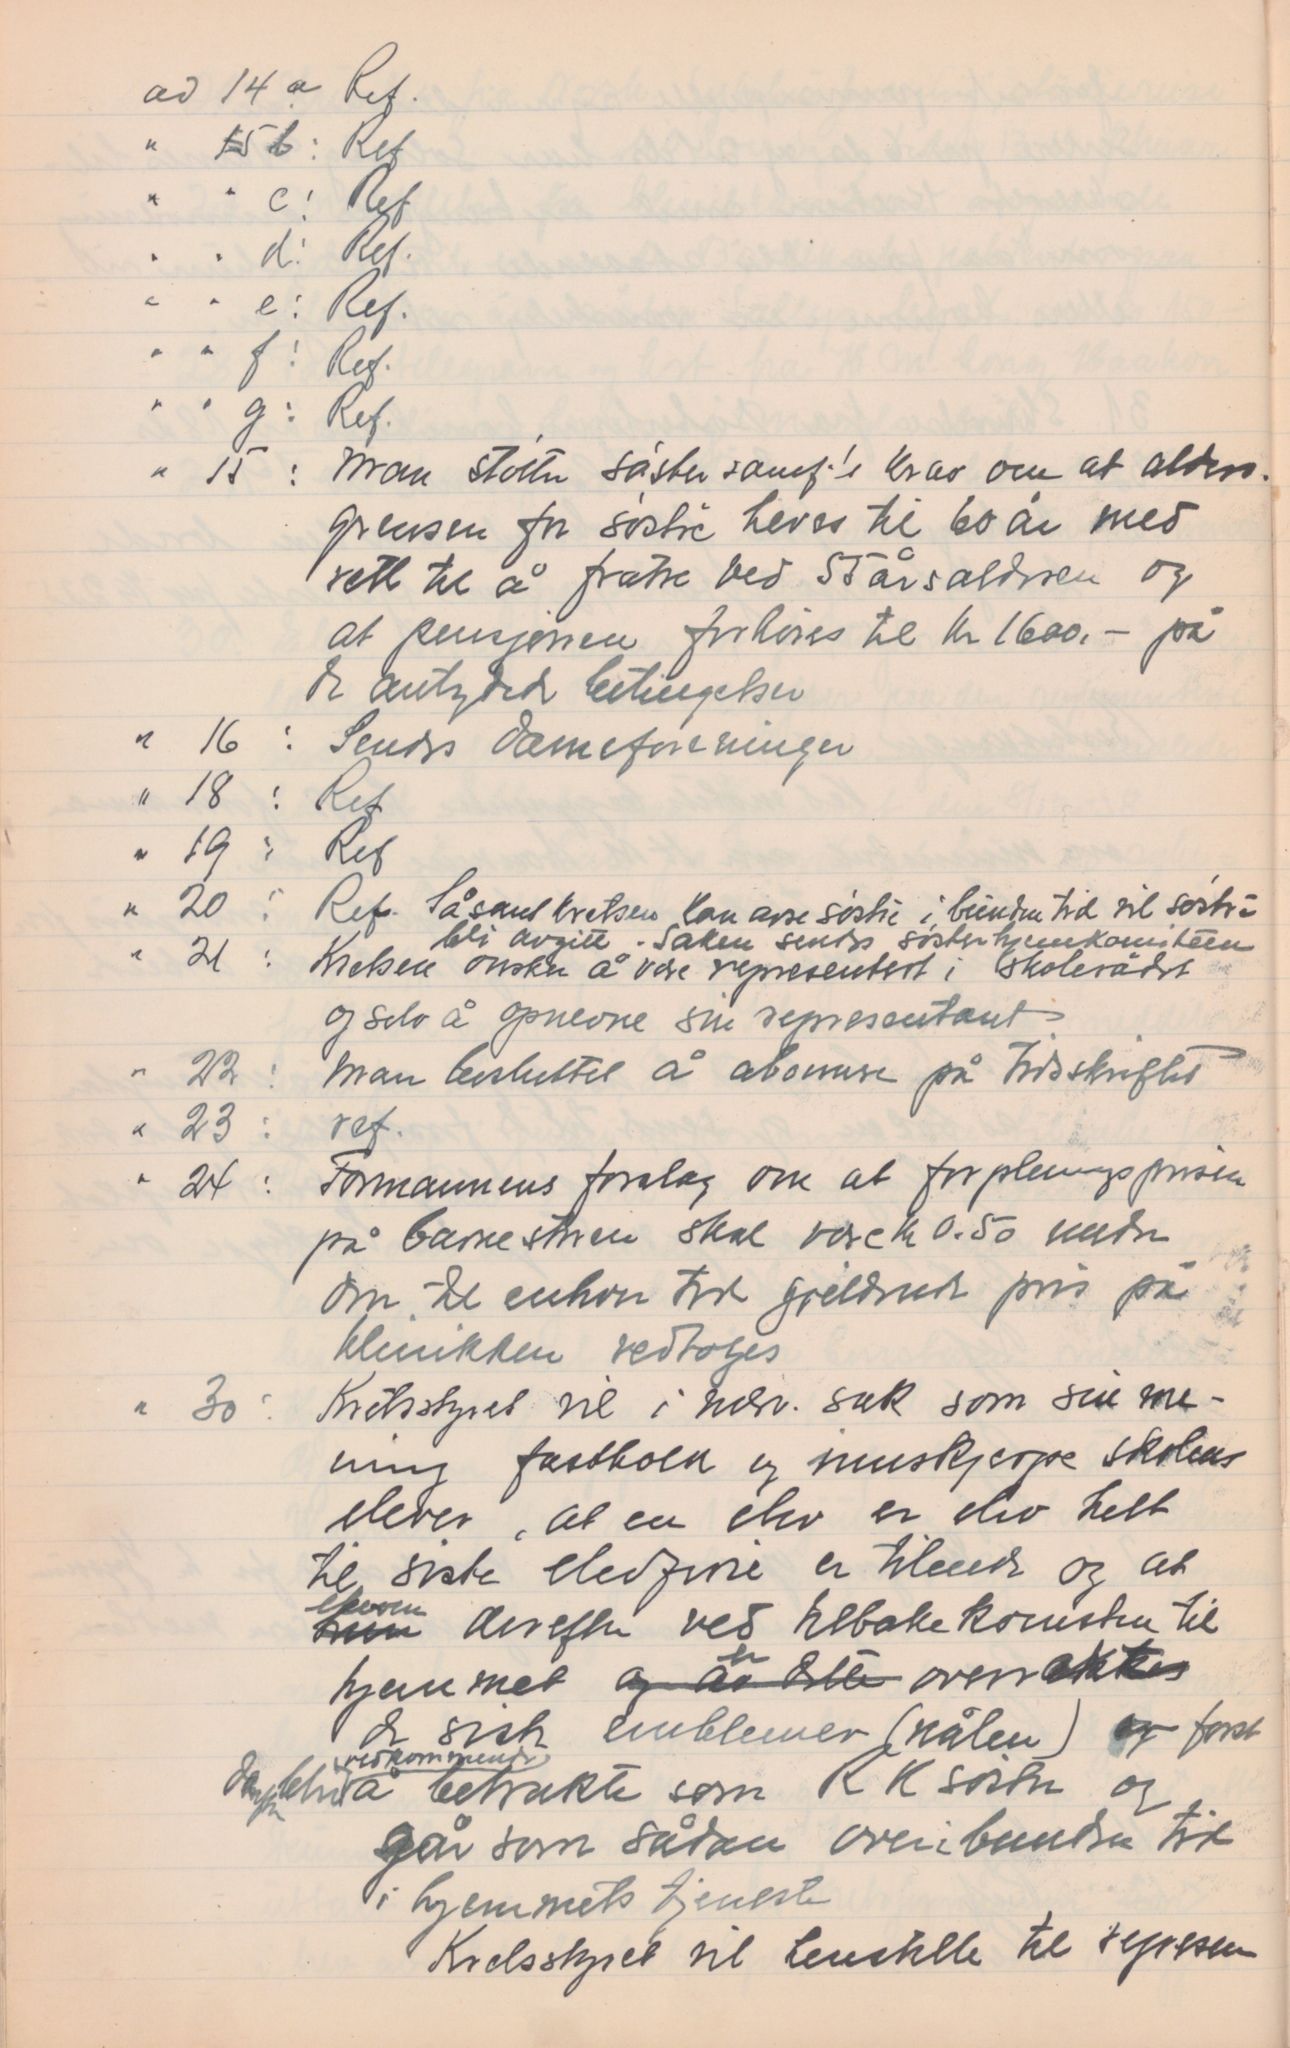 ad 14 a Ref.
" 15 b: Ref
" " c: Ref
" " d: Ref.
" " e: Ref.
" " f: Ref.
" " g: Ref.
" 15 : Man støtter søstersamf.'s krav om at alders-
grensen for søstre heves til 60 år med
rett til å fratre ved 55 årsalderen og
at pensjonen forhøies til kr 1600.- på
de antydede betingelser
" 16 : Sendes dameforeninger
" 18 : Ref
" 19 : Ref
" 20 : Ref. Såsant kretsen kan avse søstre i bunden tid vil søstre
bli avgitt. Saken sendes søsterhjemkomiteen
" 21 : Kretsen ønsker å være representert i skolerådet
og selv å opnevne sin representant
" 22 : Man besluttet å abonnere på tidsskriftet
" 23 : ref.
" 24 : Formannens forslag om at forpleningsprisen
på barnestuen skal være kr 0.50 under
den til enhver tid gjeldende pris på
klinikken vedtoges
" 30 : Kretsstyret vil i nærv. sak som sin me-
ning fastholde og innskjerpe skolens
elever, at en elev er elev helt
til siste elevferie er tilende og at
eleven derefter ved tilbakekomsten til
hjemmet er overrakt
de siste emblemer (nålen) og først
derefter blir vedkommende å betrakte som R K søster og
går som sådan over i bunden tid
i hjemmets tjeneste
Kretsstyret vil henstille til represen